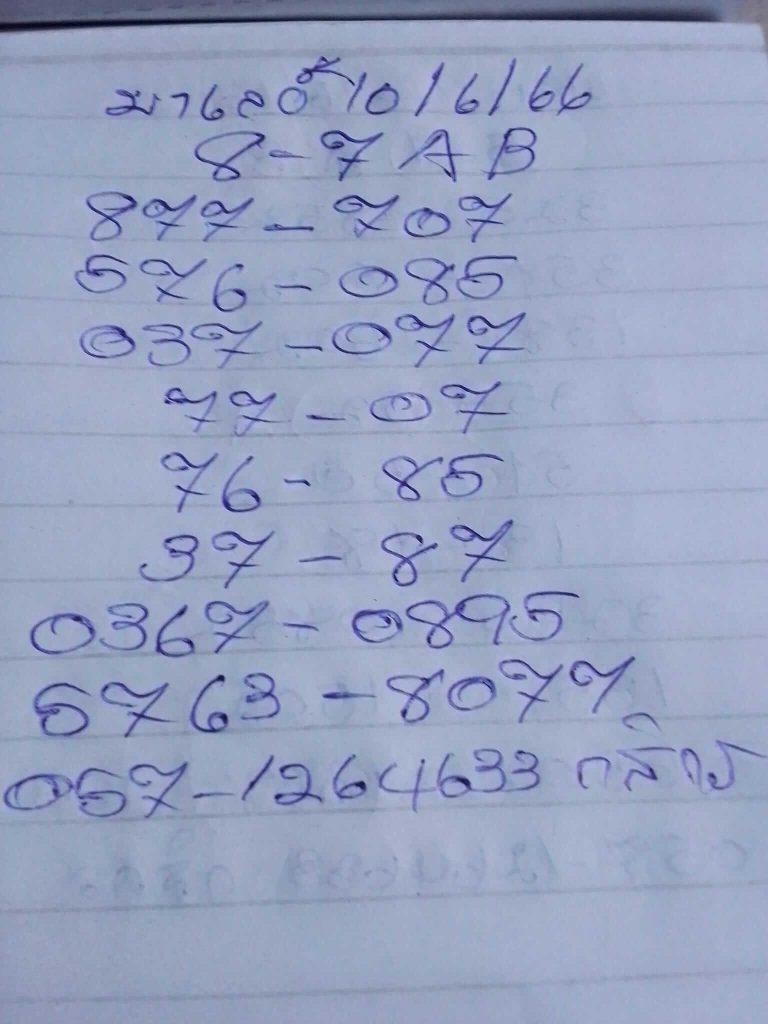 มาเลย์ 10/6/66
8-7 AB
877-707
576-085
037-077
77-07
76-85
37-87
0367-0895
5763-8077
057-1264633 กสิกร